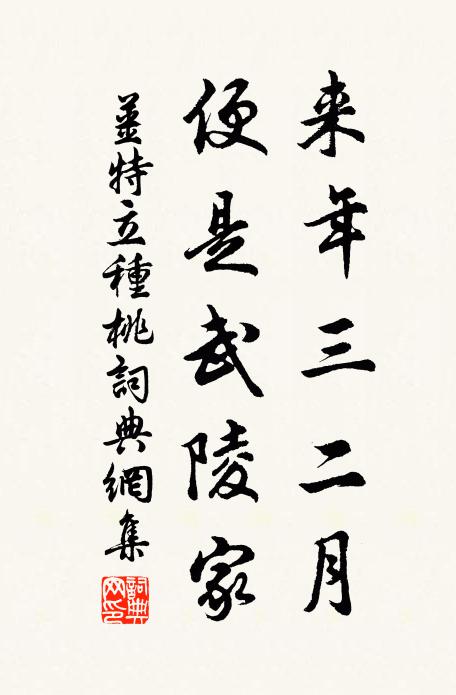 来年三二月
便是武陵家
姜特立種桃詞典網集
詞典网印